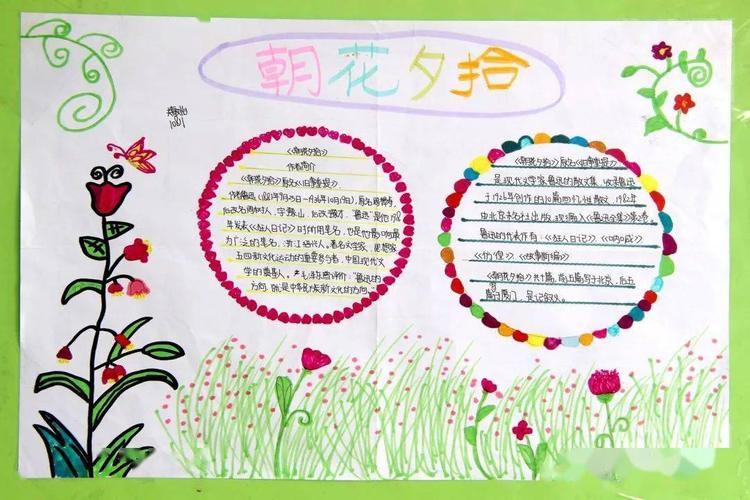 朝花夕拾
1001
《朝花夕拾》
作者简介
《朝花夕拾》原名《旧事重提》
作者鲁迅(1881年9月25日-1936年10月19日),原名周樟寿,
后改名周树人,字豫山,后改豫才,"鲁迅"是他1918
年发表《狂人日记》时所用笔名,也是他最响最
为广泛的笔名,浙江绍兴人。著名文学家,思想家
五四新文化运动的重要参与者,中国现代文
学的奠基人。毛泽东评价:"鲁迅的
方向,就是中华民族新文化的方向。"
《朝花夕拾》原名《旧事重提》,
是现代文学家鲁迅的散文集,收录鲁迅
于1926年创作的10篇回忆性散文,
由北京未名社出版,现编入《鲁迅全集》第2卷。
鲁迅的代表作有:《狂人日记》、《呐喊》
《彷徨》、《故事新编》
《朝花夕拾》共十篇,前五篇写于北京,后五
篇写于厦门,是记叙文。